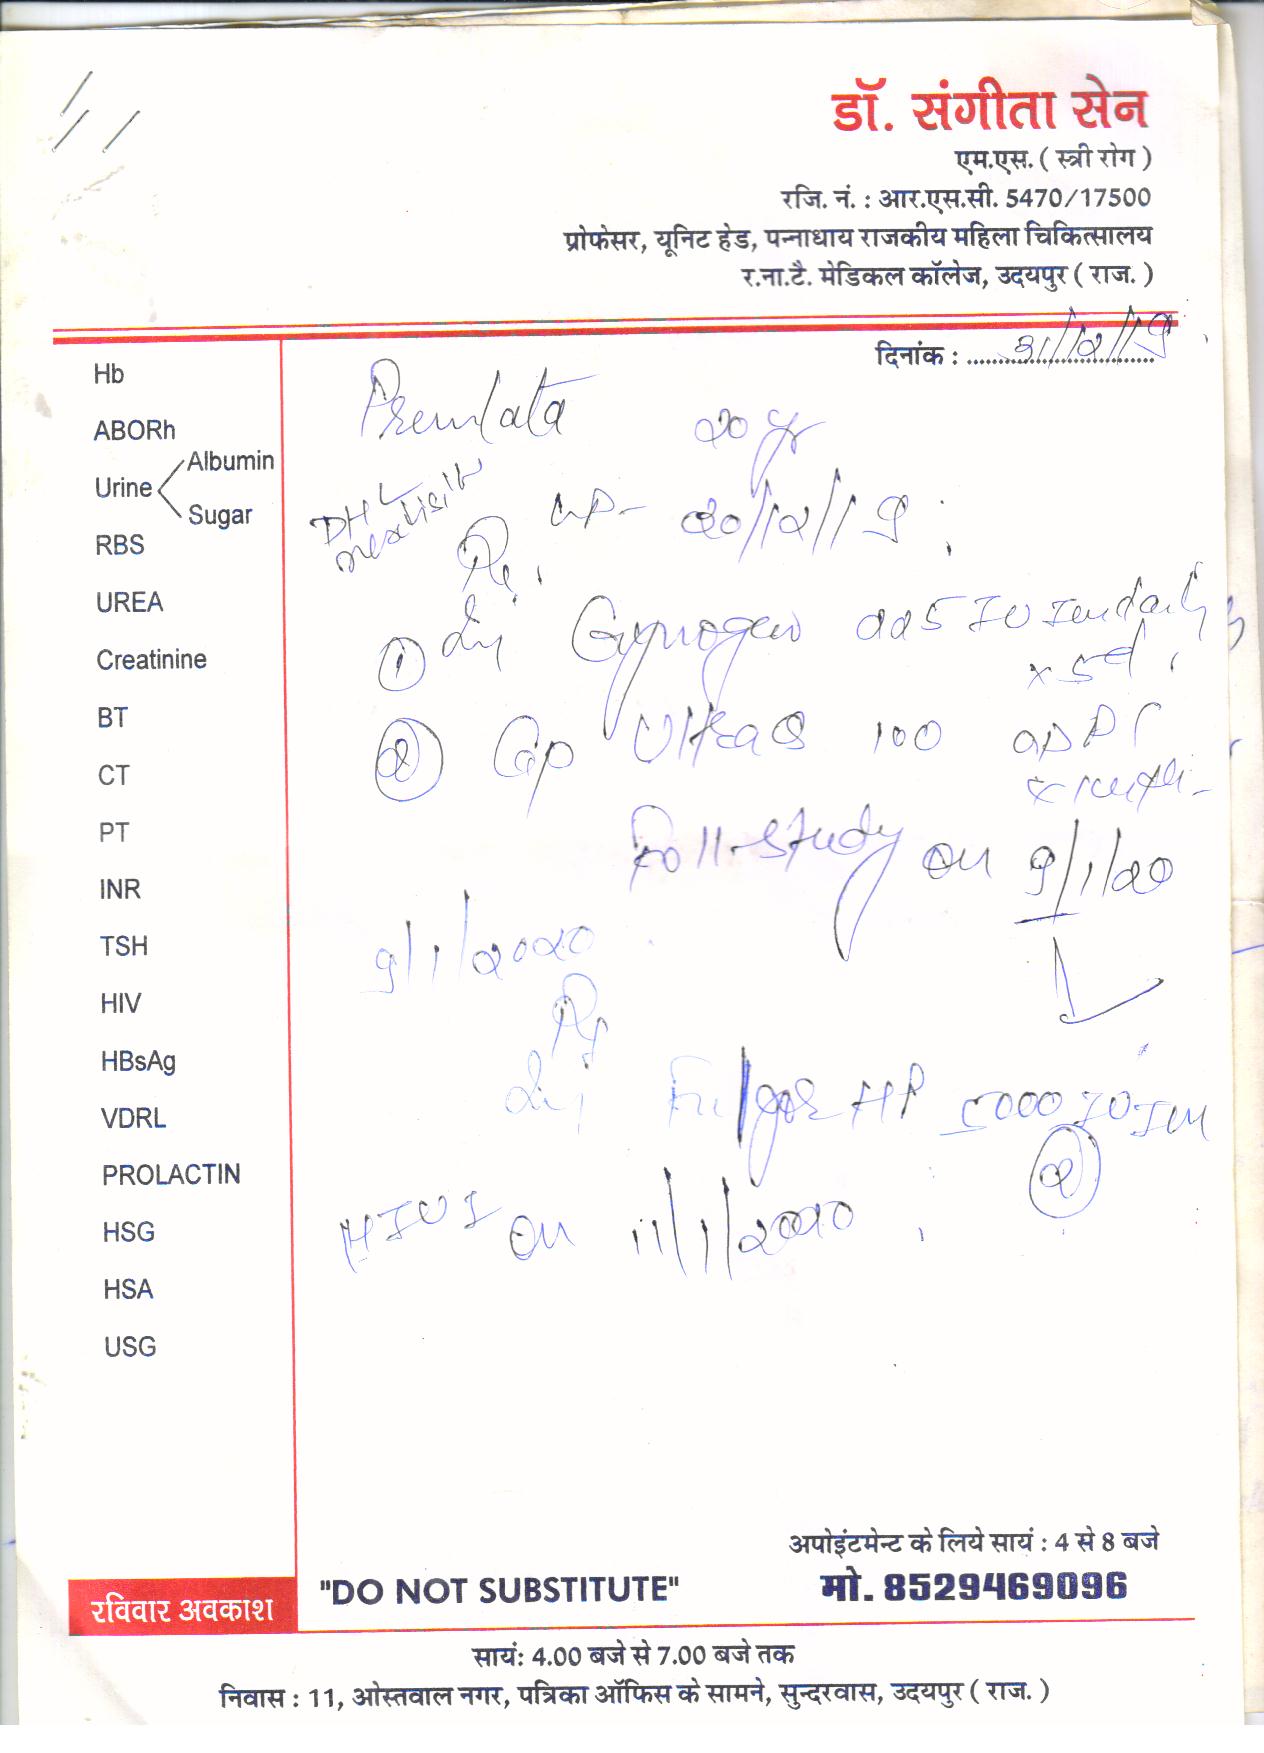 डॉ. संगीता सेन
एम.एस. ( स्त्री रोग )
रजि. नं. : आर.एस.सी. 5470/17500
प्रोफेसर, यूनिट हेड, पन्नाधाय राजकीय महिला चिकित्सालय
र.ना.टै. मेडिकल कॉलेज, उदयपुर ( राज. )
दिनांक : 31/12/19
Hb
ABORh
Urine
Albumin
Sugar
RBS
UREA
Creatinine
BT
CT
PT
INR
TSH
HIV
HBsAg
VDRL
PROLACTIN
HSG
HSA
USG
Premlata 20 yr
DHL
next visit
LMP- 20/12/19
Rx
① Inj Gynogen 225 IU IM daily
x 5d
② Cap 100
Foll. study on 9/1/20
9/1/2020
Rx
Inj HP 5000 IU IM
②
HIUI on 11/1/2020
अपोइंटमेन्ट के लिये सायं : 4 से 8 बजे
"DO NOT SUBSTITUTE" मो. 8529469096
रविवार अवकाश
सायं: 4.00 बजे से 7.00 बजे तक
निवास : 11, ओस्तवाल नगर, पत्रिका ऑफिस के सामने, सुन्दरवास, उदयपुर ( राज. )